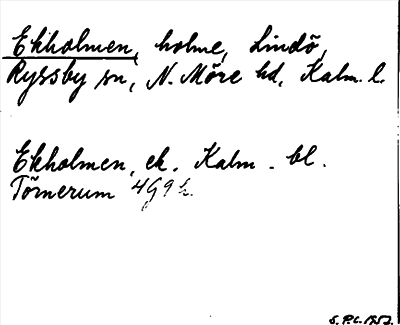 Ekholmen, holme, Lindö,
Ryssby sn, N. Möre hd, Kalm. l.
Ekholmen, ek. Kalm. bl.
Törnerum 4G9h.
S.P.C. 1952.